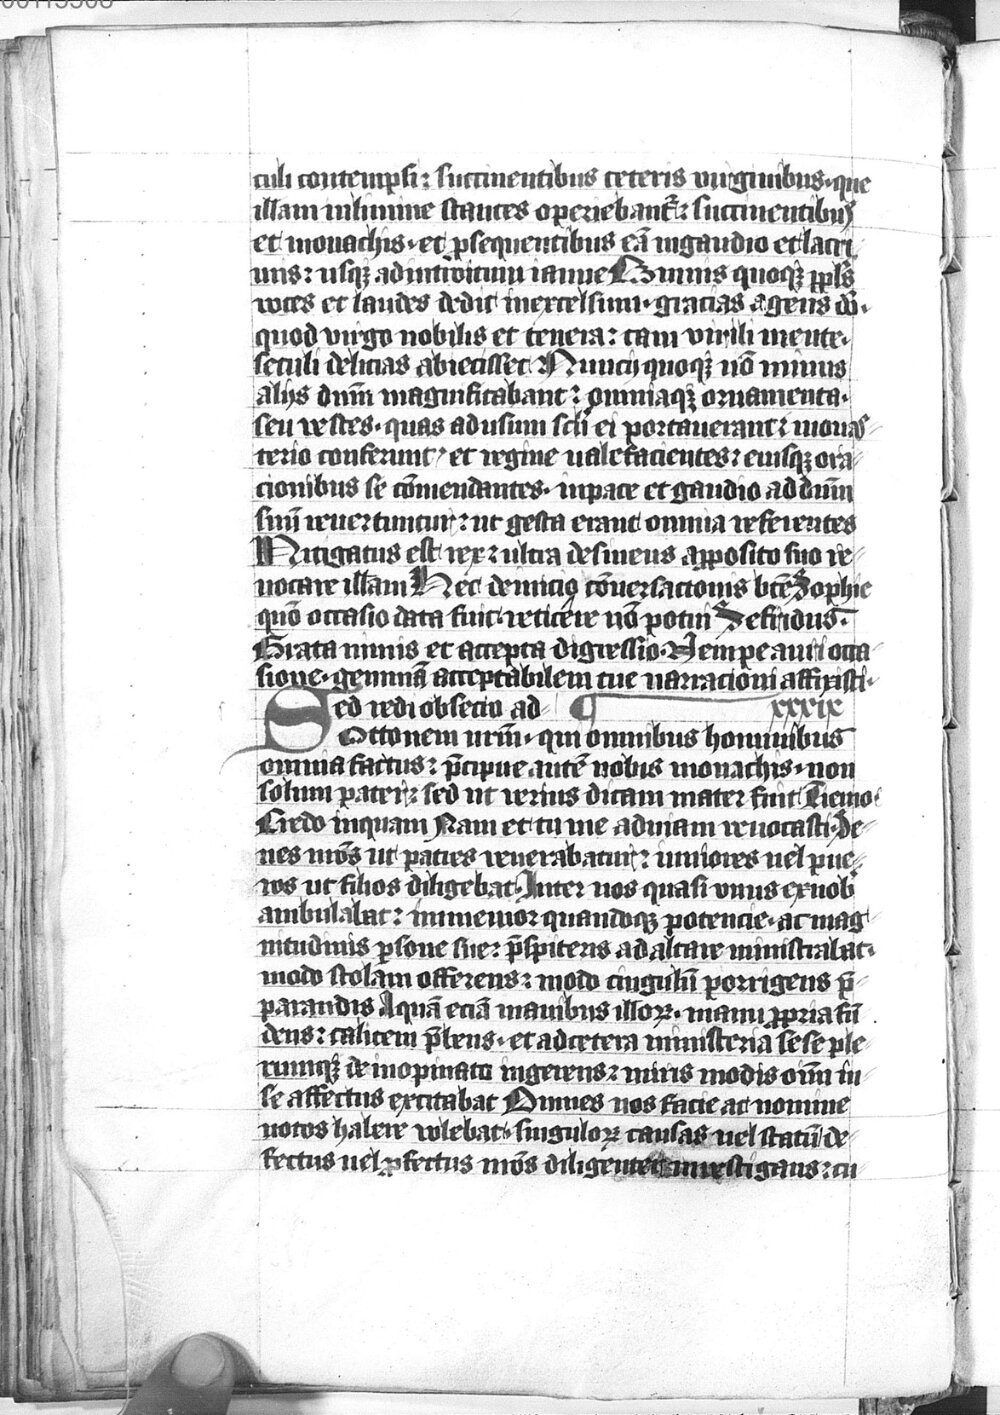 culi contempsi: succinentibus ceteris virginibus. que
illam in limine stantes operiebant͛: succinentib9
et monachis. et ꝑsequentibus eā in gaudio et lacri
mis: usqꝫ ad introitum ianue Omnis quoqꝫ ppl̄s
voces et laudes dedit in excelsum. gracias agens dō.
quod virgo nobilis et tenera: tam virili mente.
seculi delicias abiecisset Nuncij quoqꝫ nō minus
alijs dnm̄ magnificabant: omniaqꝫ ornamenta.
seu vestes. quas ad usum scl̄i ei portauerant: monas
terio conferunt. et regine ualefacientes: eiusqꝫ ora
cionibus se cōmendantes. in pace et gaudio ad dnm̄
suū reuertuntur: ut gesta erant omnia referentes
Mitigatus est rex: ultra desinens apposito suo re
uocare illam Hec de inicio cōuersacionis bt̄e Sophie
quō occasio data fuit. reticere nō potui Sefridus.
Grata nimis et accepta digressio. Nempe auri occa
sione. gemmā acceptabilem tue narracioni affixisti.
Sed redi obsecro ad xxxix
Ottonem nrm̄. qui omnibus hominibus
omnia factus: p̄cipue autē nobis monachis. non
solum pater: sed ut verius dicam mater fuit Tiemo.
Credo inquam Nam et tu me ad uiam reuocasti. Se
nes mōs ut patres venerabatur: iuniores uel pue
ros ut filios diligebat. Inter nos quasi vnus ex nob̄
ambulabat: immemor quandoqꝫ potencie. ac mag
nitudinis ꝑsone sue: p̄sbiteris ad altare ministrabat.
modo stolam offerens: modo cingulū porrigens p̄
parandis Aquā eciā manibus illoꝝ. manu ꝓpria fū
dens: calicem p̄bens. et ad cetera ministeria sese ple
rumqꝫ de inopinato ingerens: miris modis oīm in
se affectus excitabat Omnes nos facie ac nomine
notos habere volebat. singuloꝝ causas uel statū de
fectus uel ꝓfectus mōs diligenter inuestigans: cū